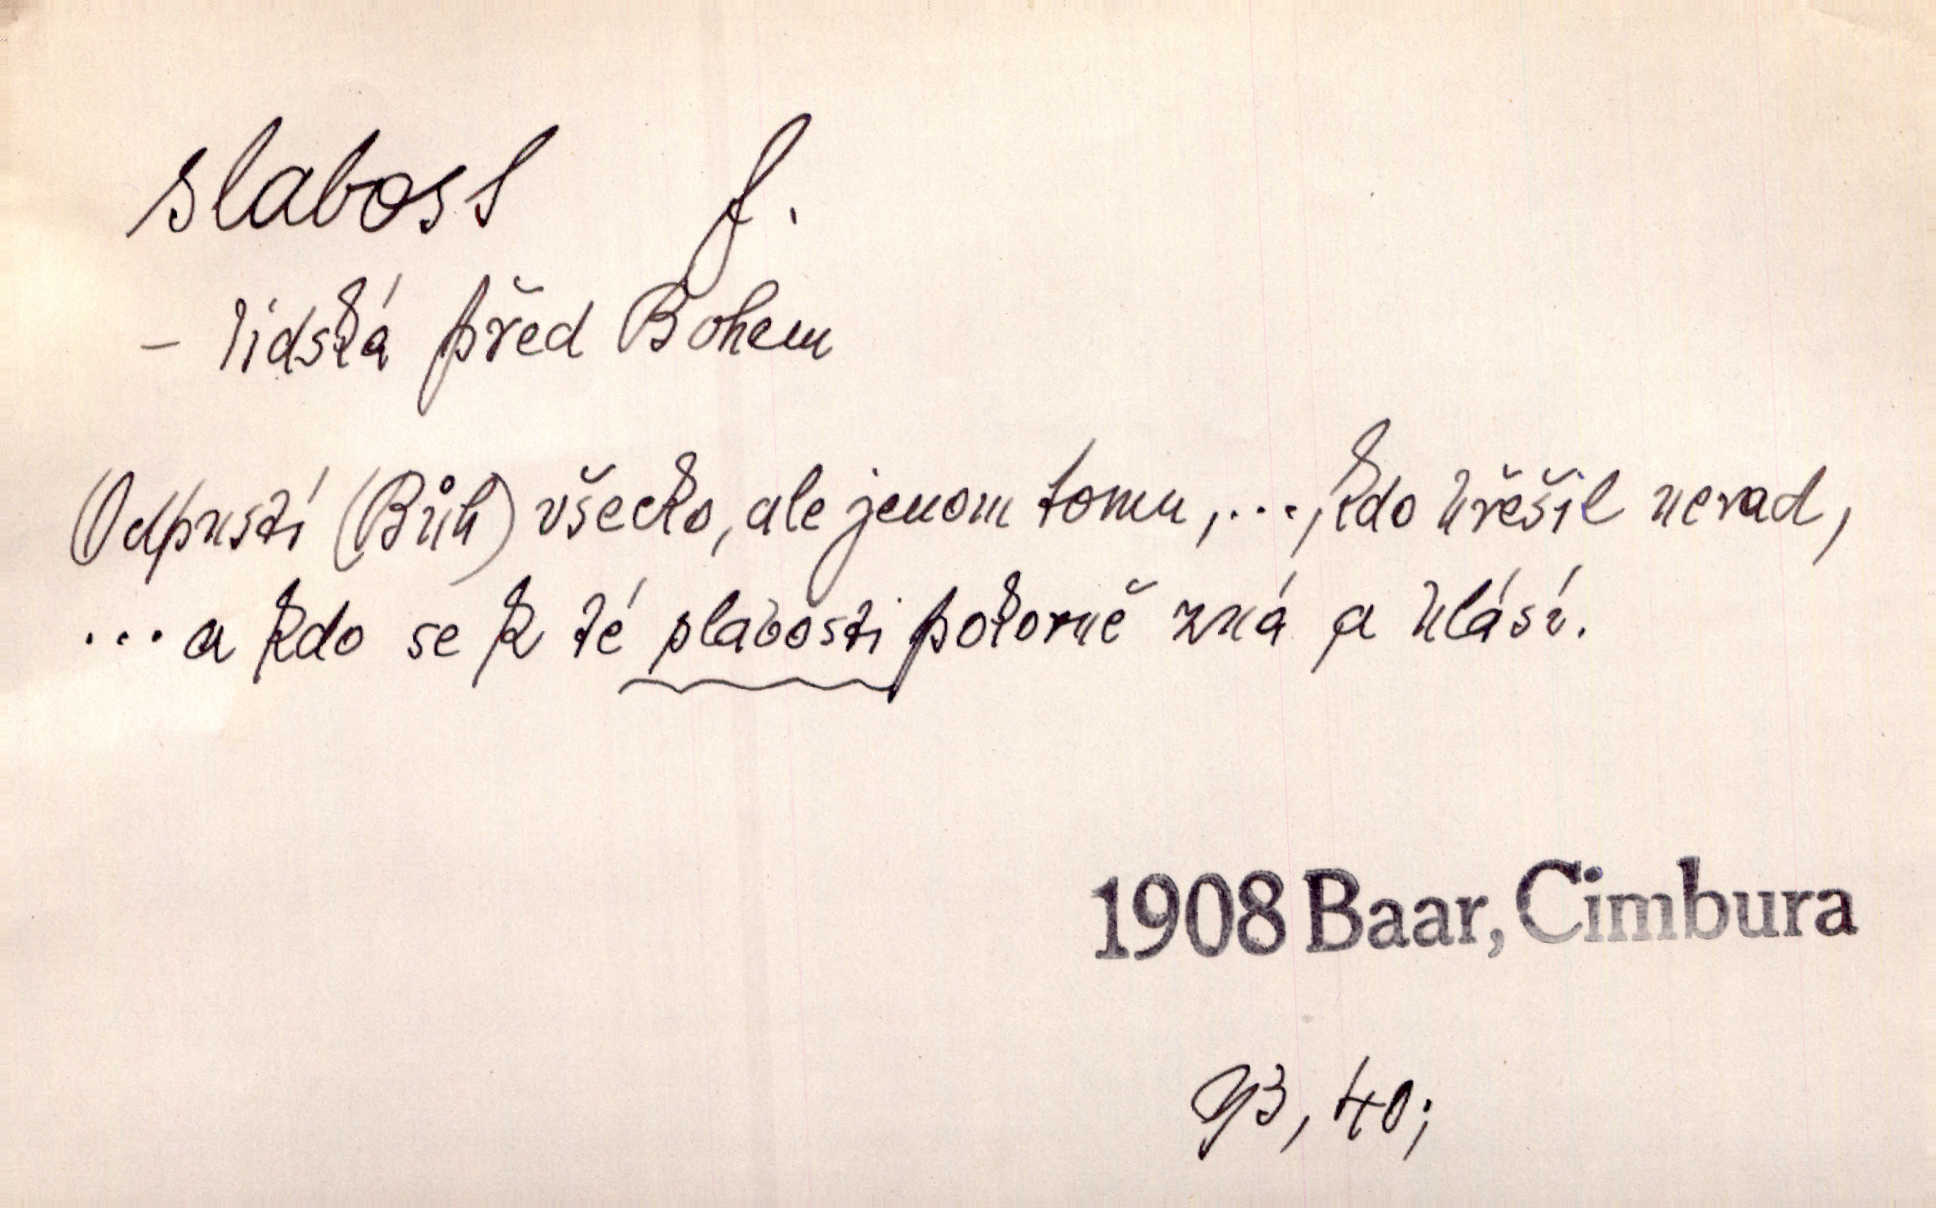 slabost f.
– lidská před Bohem
Odpustí (Bůh) všecko, ale jenom tomu, ..., kdo hřešil nerad,
... a kdo se k té slabosti pokorně zná a hlásí.
1908 Baar, Cimbura
93, 40;